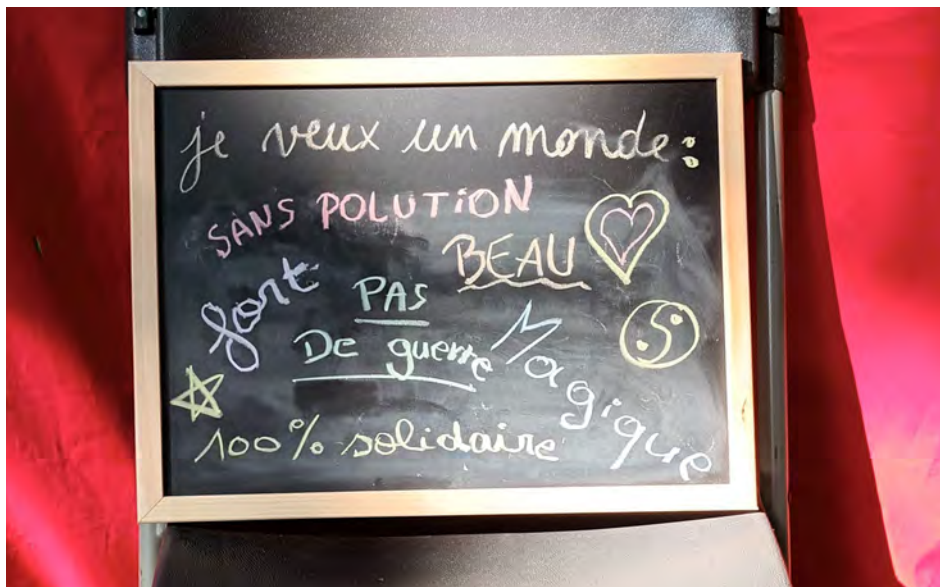 je veux un monde :
SANS POLUTION
BEAU
fort
PAS
De guerre
Magique
100% solidaire